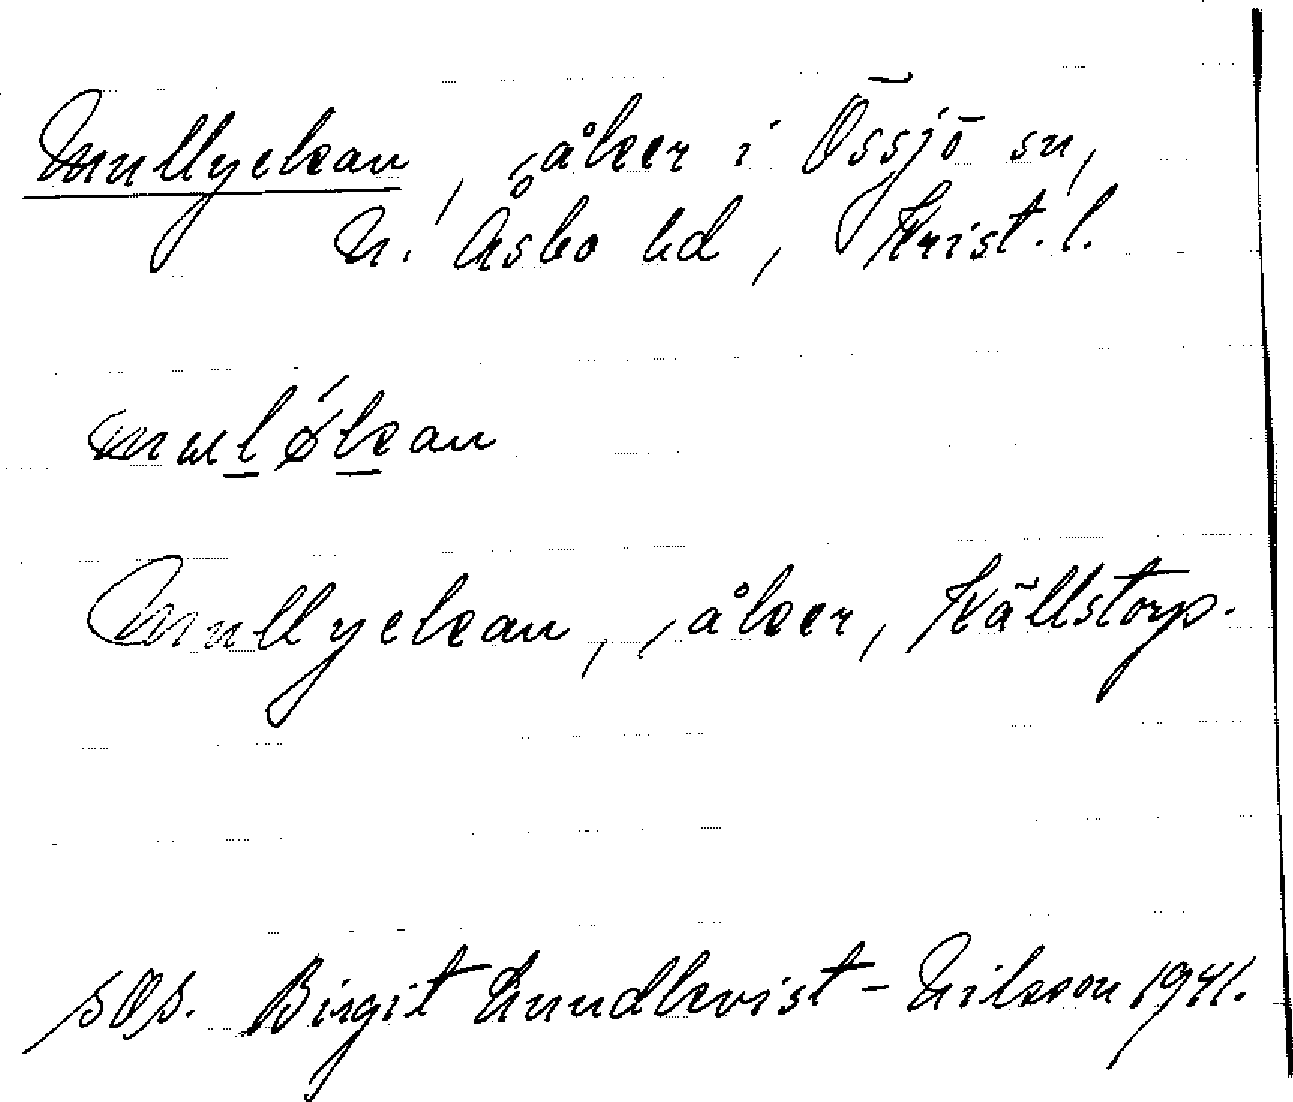 Mullyckan, åker i Össjö sn,
N. Åsbo hd, Krist. l.
mulǿkan
Mullyckan, åker, Källstorp.
SOS. Birgit Lundkvist-Nilsson 1941.